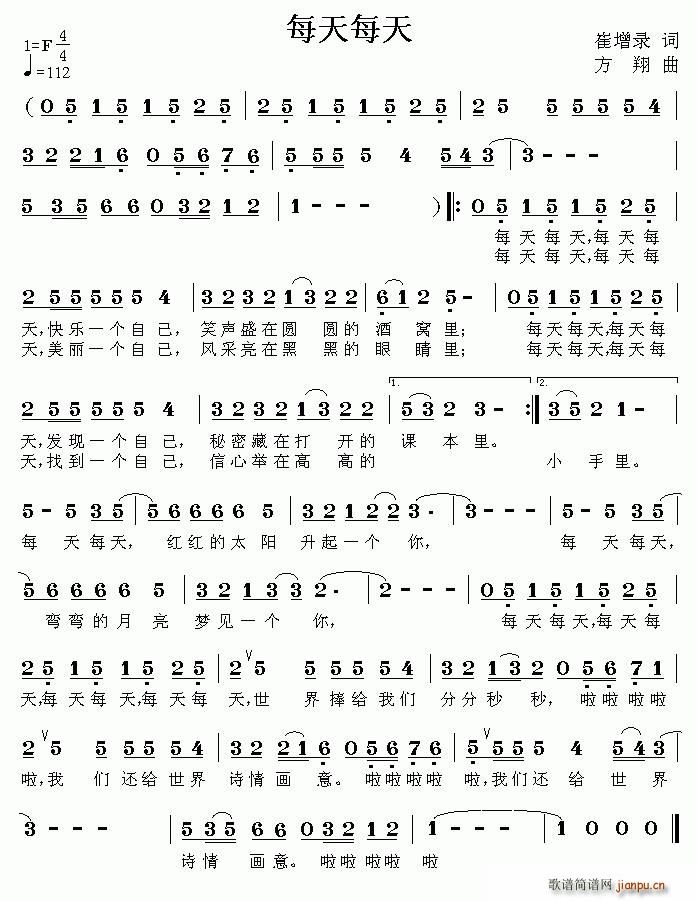 每天每天
1=F 4/4
♩=112
崔增录 词
方 翔 曲
(0 5 1 5 1 5 2 5 | 2 5 1 5 1 5 2 5 | 2 5 5 5 5 5 4
3 2 2 1 6 0 5 6 7 6 | 5 5 5 5 4 5 4 3 | 3 - - -
5 3 5 6 6 0 3 2 1 2 | 1 - - - ) ‖: 0 5 1 5 1 5 2 5
每 天 每 天,每 天 每
每 天 每 天,每 天 每
2 5 5 5 5 5 4 | 3 2 3 2 1 3 2 2 | 6 1 2 5 - | 0 5 1 5 1 5 2 5
天,快乐一个自己, 笑声盛在圆 圆的 酒 窝里; 每天每天,每天每
天,美丽一个自己, 风采亮在黑 黑的 眼 睛里; 每天每天,每天每
1.
2.
2 5 5 5 5 5 4 | 3 2 3 2 1 3 2 2 | 5 3 2 3 - :‖ 3 5 2 1 -
天,发现一个自己, 秘密藏在打 开的 课 本里。
天,找到一个自己, 信心举在高 高的 小 手里。
5 - 5 3 5 | 5 6 6 6 6 5 | 3 2 1 2 2 3 3 . | 3 - - - | 5 - 5 3 5
每 天每天, 红红的太阳 升起一个 你, 每 天每天,
5 6 6 6 6 5 | 3 2 1 3 3 2 . | 2 - - - | 0 5 1 5 1 5 2 5
弯弯的月 亮 梦见一个 你, 每天每天,每天每
2 5 1 5 1 5 2 5 | 2 ∨ 5 5 5 5 5 4 | 3 2 1 3 2 0 5 6 7 1
天,每天每 天,每天每 天,世 界捧给我们 分分秒 秒, 啦啦啦啦
2 ∨ 5 5 5 5 5 4 | 3 2 2 1 6 0 5 6 7 6 | 5 ∨ 5 5 5 4 5 4 3
啦,我 们还给世界 诗情画 意。 啦啦啦啦 啦,我们还 给 世 界
3 - - - | 5 3 5 6 6 0 3 2 1 2 | 1 - - - | 1 0 0 0 ‖
诗情 画意。 啦啦啦啦 啦
歌谱简谱网
jianpu.cn